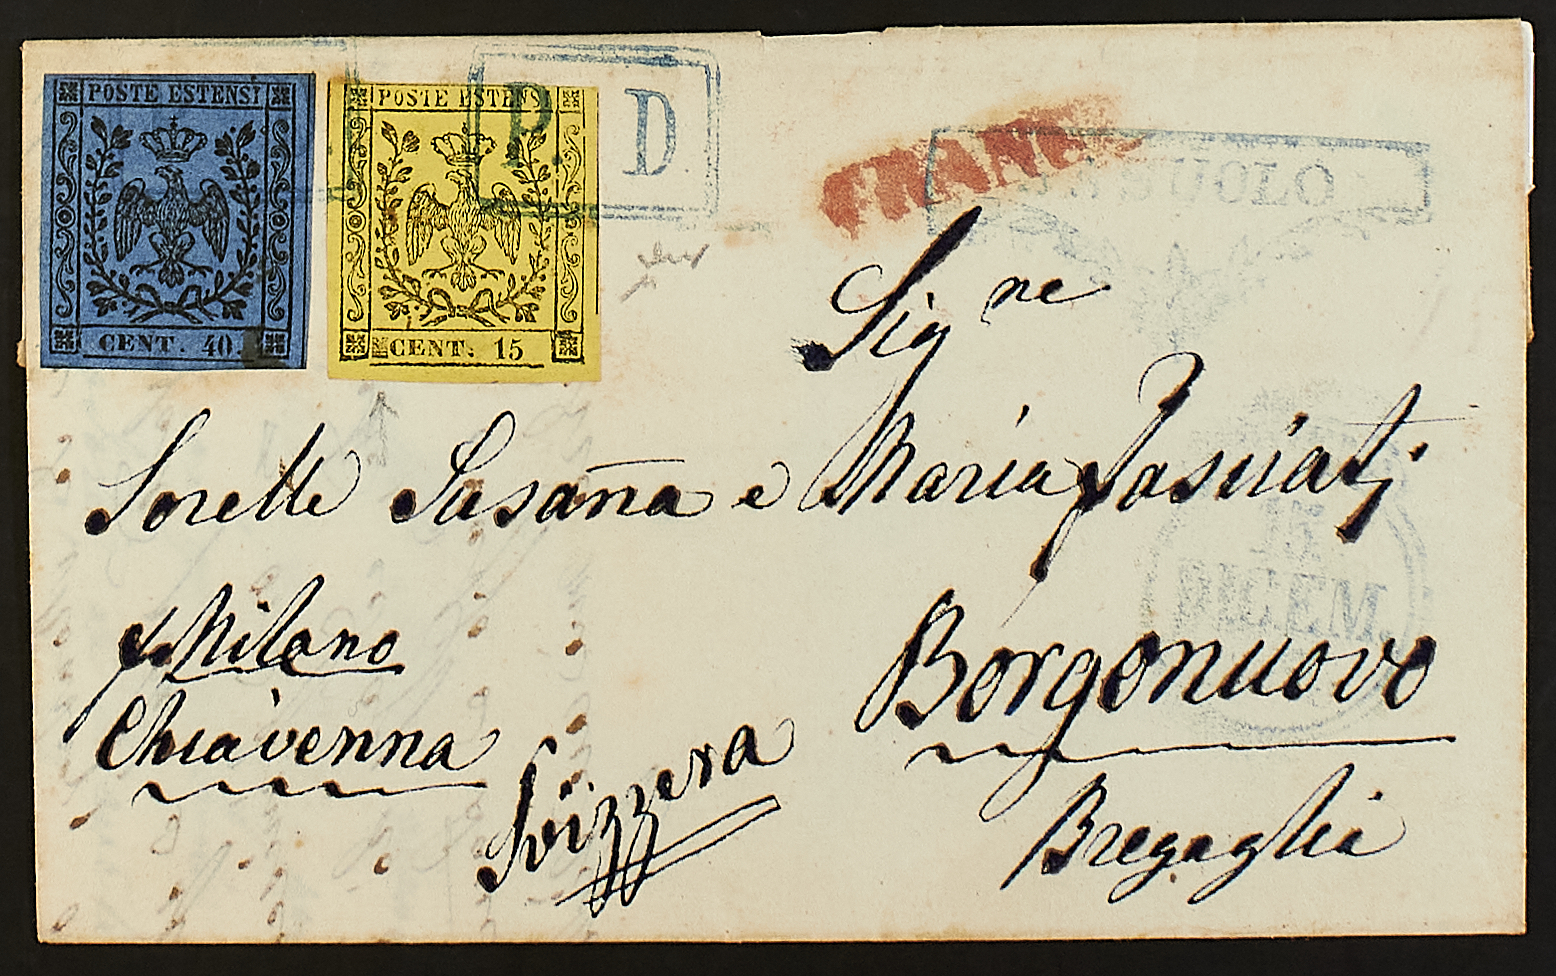 POSTE ESTENSI
CENT. 40.
POSTE ESTENSI
CENT. 15
P. D
FRANCO
SASSUOLO
Sig.ne
Sorelle Susaña e Maria
Milano
Chiavenna
Svizzera
Borgonuovo
Bregaglia